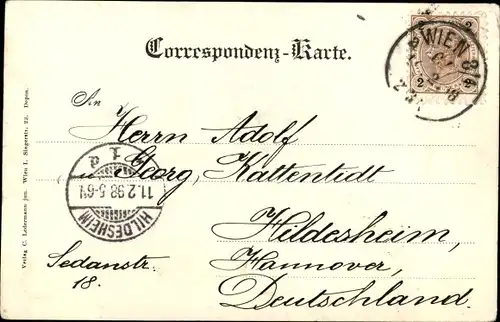 Correspondenz-Karte.
An
Herrn Adolf
Georg, Kattentidt
Hildesheim,
Sedanstr.
18.
Hannover,
Deutschland.
WIEN
2
2
HILDESHEIM
11.2.98.5-6
1
a
Verlag C. Ledermann jun. Wien I. Singerstr. 22. Depon.